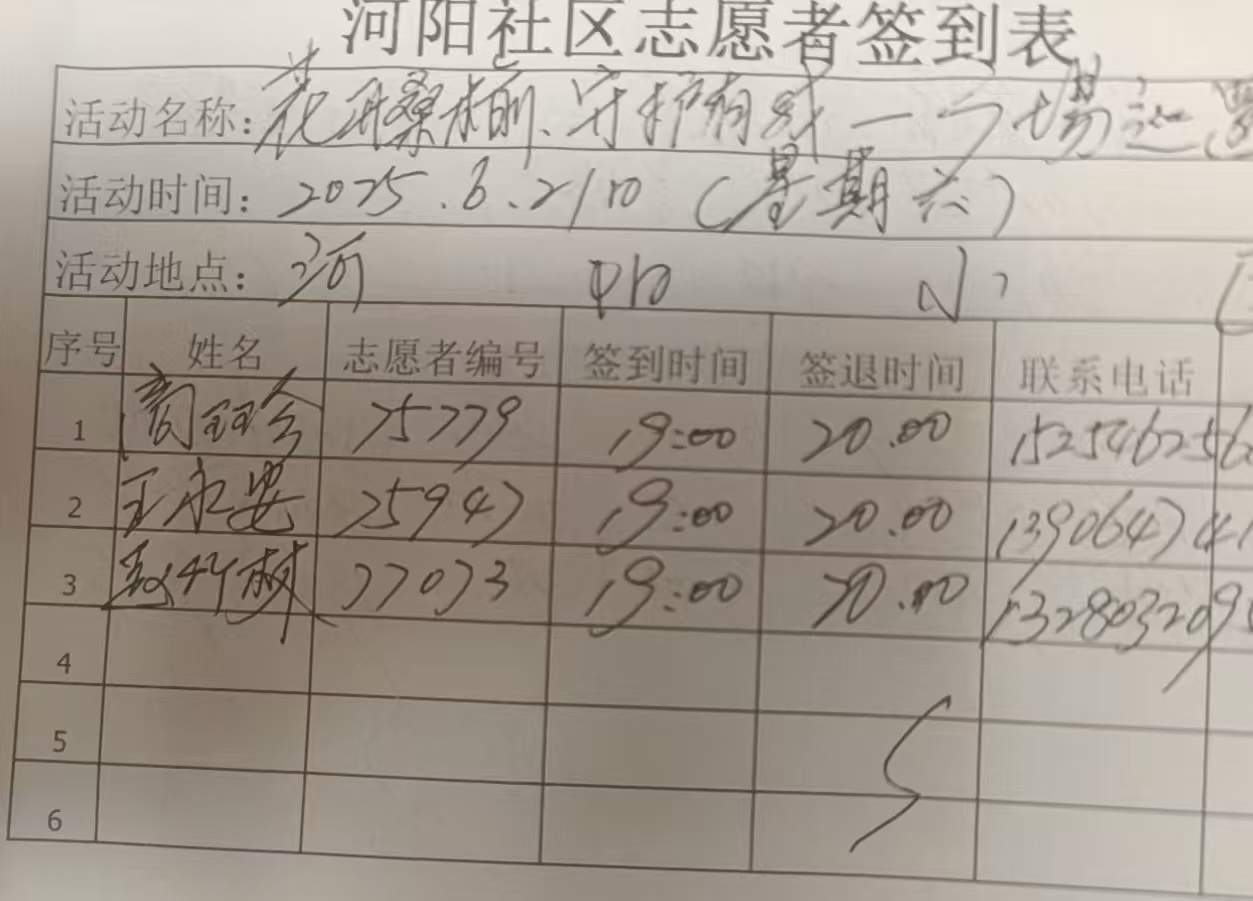 河阳社区志愿者签到表
活动名称:花开桑榆、守护有
活动时间: 2025.6.21日(星期六)
活动地点: 河 阳 小
序号 姓名 志愿者编号 签到时间 签退时间 联系电话
1 75779 19:00 20.00 152546256
2 王永 75947 19:00 20.00 139064741
3 77073 19:00 20.00 132803209
4
5
6